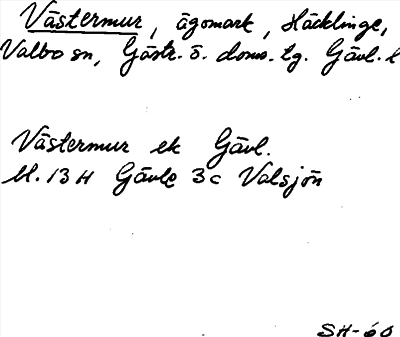 Västermur, ägomark, Häcklinge,
Valbo sn, Gästr. ö. doms. tg. Gävl. l
Västermur ek Gävl.
bl. 13 H Gävle 3c Valsjön
SH-60